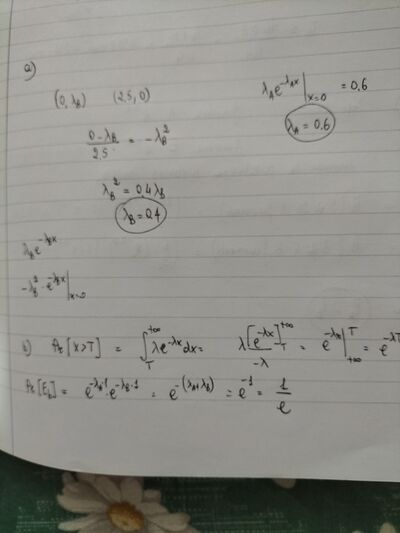 a)
(0, λ_B) (2.5, 0)
λ_A e^{-λ_A x} |_{x=0} = 0.6
λ_A = 0.6
\frac{0-λ_B}{2.5} = -λ_B^2
λ_B^2 = 0.4 λ_B
λ_B = 0.4
λ_B e^{-λ_B x}
-λ_B^2 · e^{-λ_B x} |_{x=0}
b) Pr[X>T] = \int_T^{+∞} λ e^{-λx} dx = λ \frac{[e^{-λx}]_T^{+∞}}{-λ} = e^{-λx} |_{+∞}^T = e^{-λT}
Pr[E_1] = e^{-λ_A·1} · e^{-λ_B·1} = e^{-(λ_A+λ_B)} = e^{-1} = \frac{1}{e}